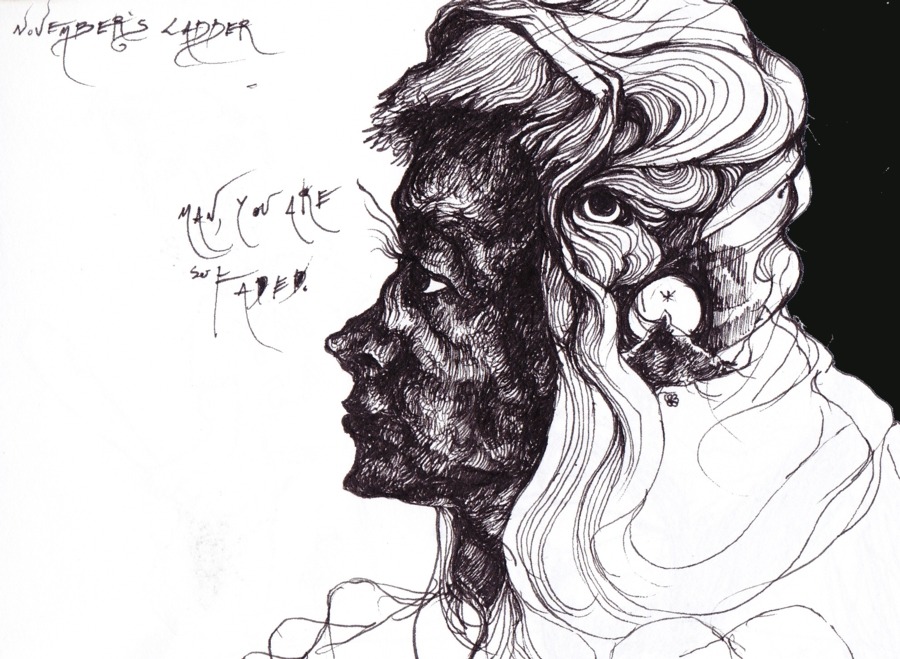 NOVEMBER'S LADDER
MAN, YOU ARE
SO FADED.